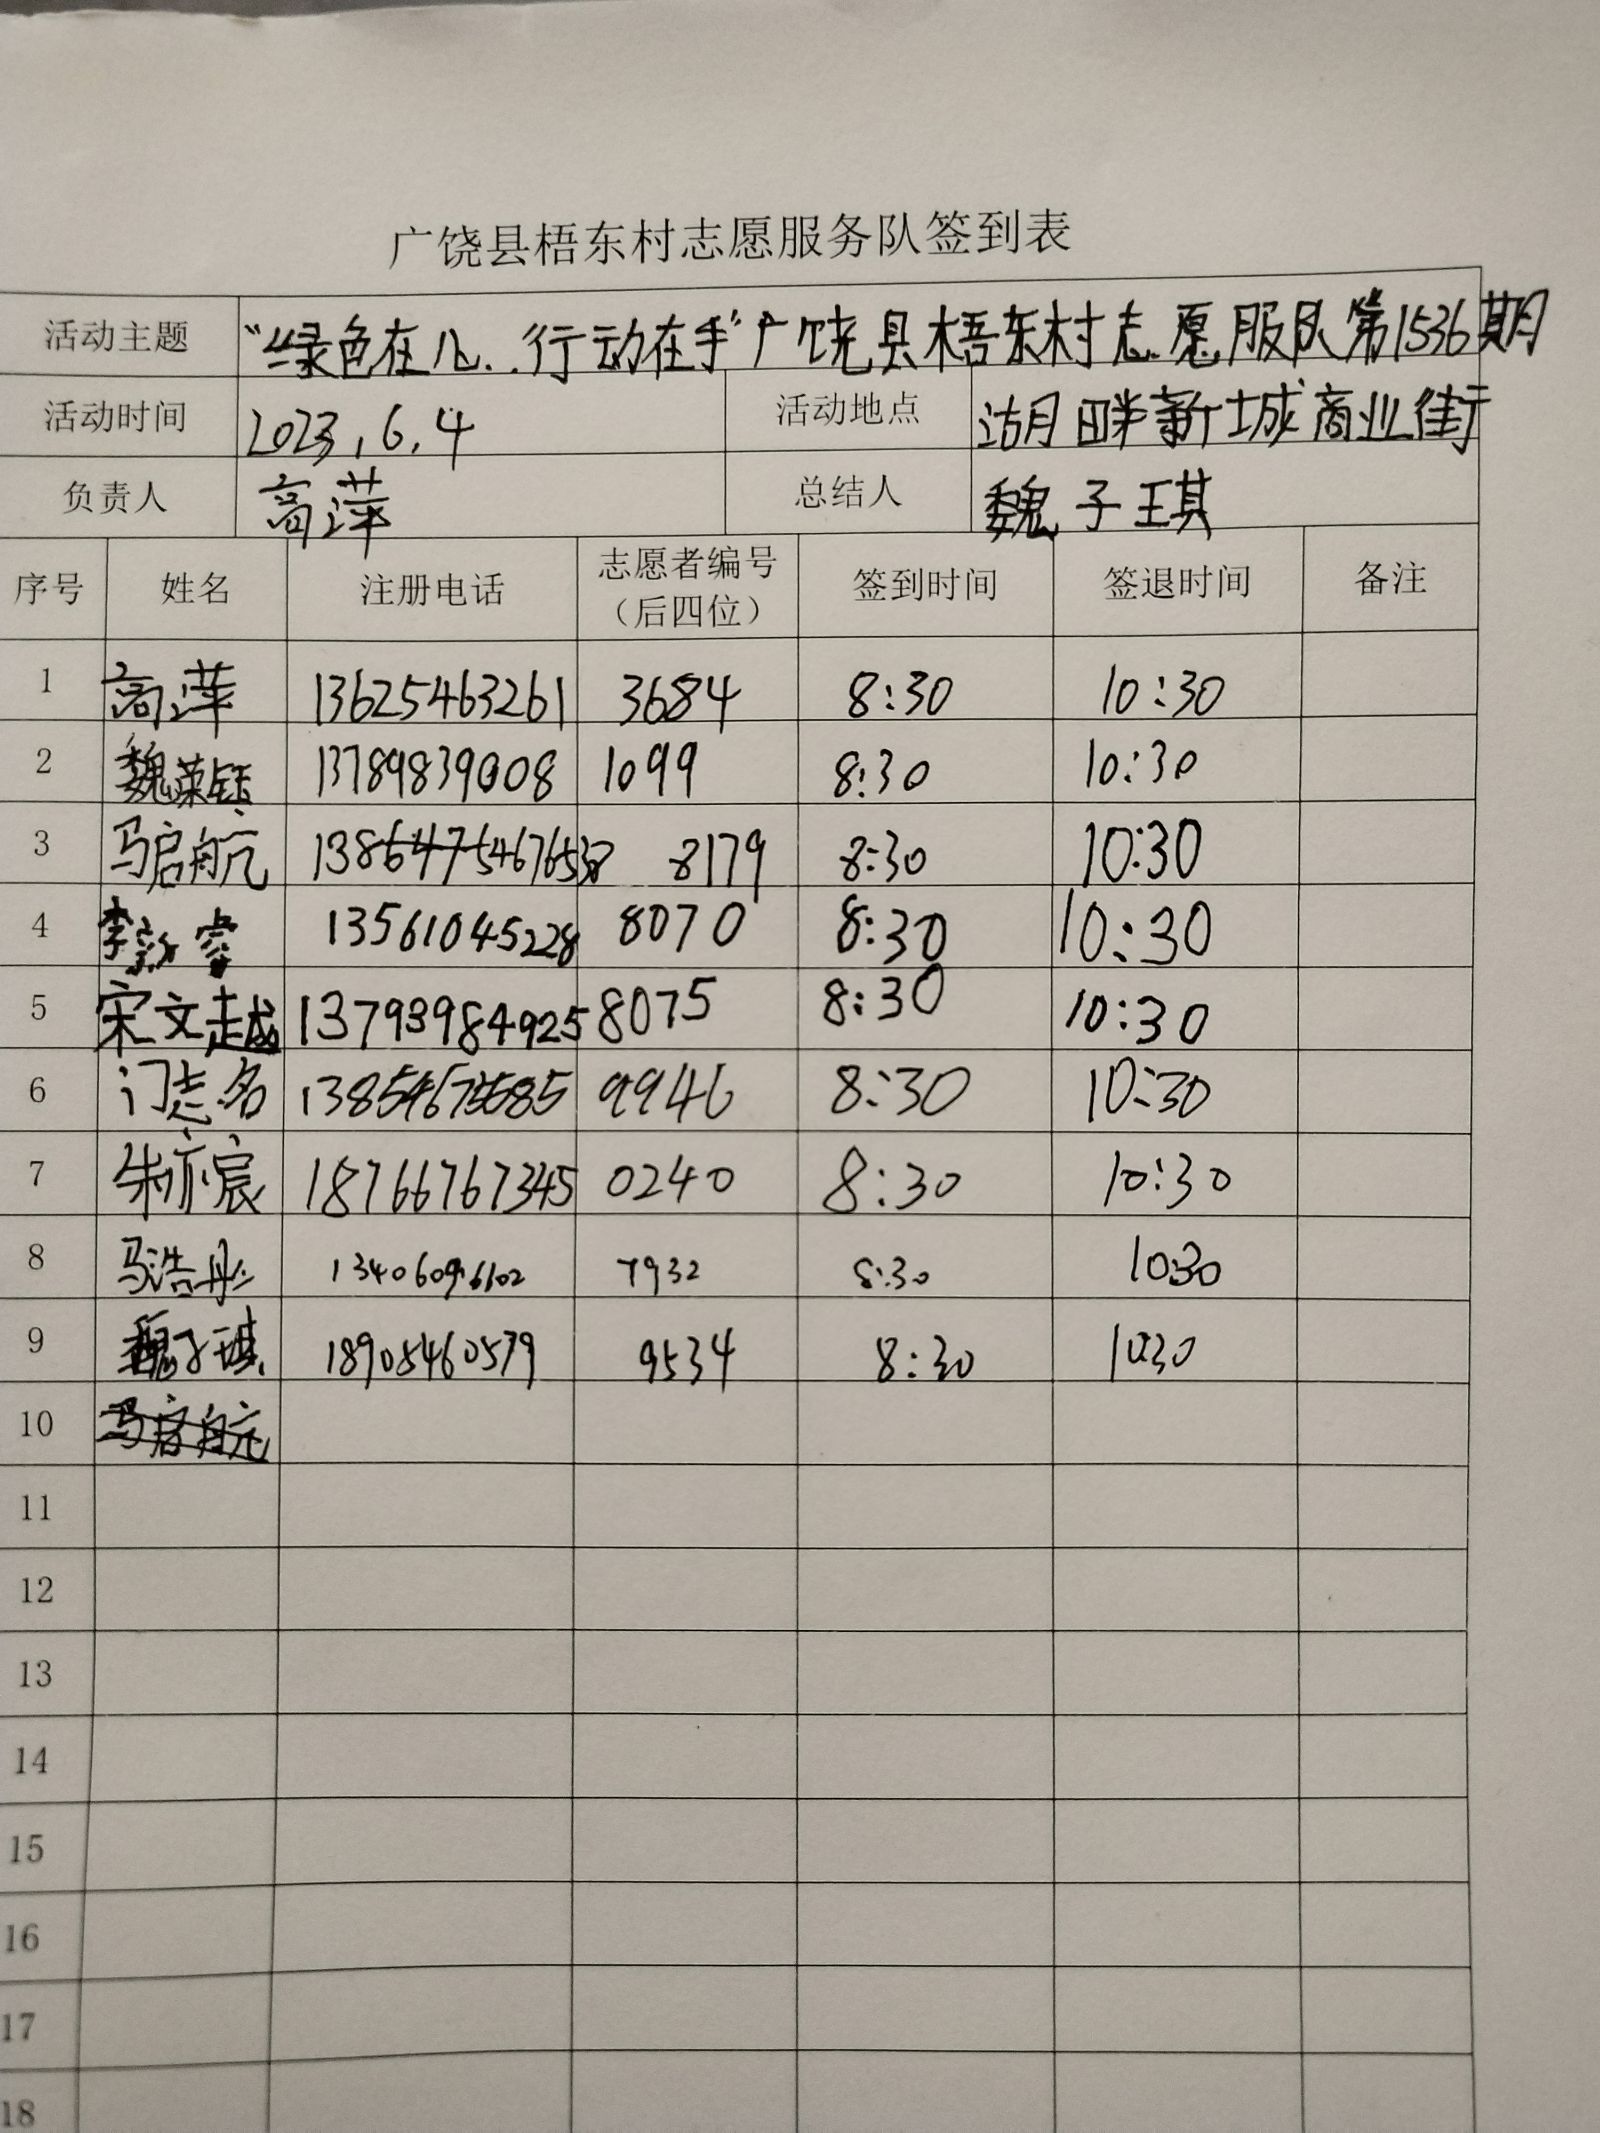 广饶县梧东村志愿服务队签到表
活动主题 “绿色在心..行动在手”广饶县梧东村志愿服队第1536期
活动时间 2023.6.4 活动地点 湖畔新城商业街
负责人 高萍 总结人 魏子琪
序号 姓名 注册电话 志愿者编号（后四位） 签到时间 签退时间 备注
1 高萍 13625463261 3684 8:30 10:30
2 魏荣钰 13789839008 1099 8:30 10:30
3 马启航 8179 8:30 10:30
4 李 睿 13561045228 8070 8:30 10:30
5 宋文越 13793984925 8075 8:30 10:30
6 门志名 9946 8:30 10:30
7 朱亦宸 18766767345 0240 8:30 10:30
8 马浩彤 13406096102 7932 8:30 10:30
9 魏子琪 18905460579 9534 8:30 10:30
10 马启航
11
12
13
14
15
16
17
18